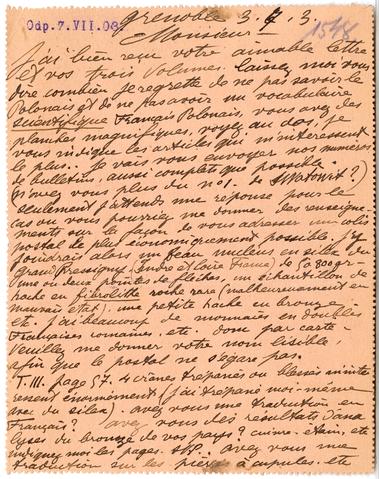 Odp. 7. VII. 03.
1548
Grenoble 3. 7. 3
Monsieur
J'ai bien reçu votre aimable lettre
et vos trois volumes. Laissez moi vous
dire combien je regrette de ne pas savoir le
Polonais & de ne pas avoir un vocabulaire
scientifique Français Polonais, vous avez des
planches magnifiques, voyez au dos, je
vous indique les articles qui m'intéressent
le plus. Je vais vous envoyer nos numéros
de bulletins, aussi complets que possible
n'avez vous plus du no 1. de Swiatowit?)
seulement j'attends une réponse pour le
cas où vous pourriez me donner des renseigne
ments sur la façon de vous adresser un colis
postal le plus économiquement possible. J'y
joindrais alors un beau nucleus en silex du
Grand Pressigny (Indre et Loire France) de 800 gr.
une ou deux pointes de flèches, un échantillon de
hache en fibrolithe roche rare (malheureusement en
mauvais état), une petite hache en bronze
etc. J'ai beaucoup de monnaies en doubles
Françaises romaines. etc. dom par carte
Veuillez me donner votre nom lisible,
afin que le postal ne s'égare pas.
T. III. page 57. 4 crânes trépanés ou blessés m'inté
ressent énormément (j'ai trépané moi-même
avec du silex) avez vous une traduction en
Français? avez vous des résultats d'ana
lyses du bronze de vos pays? cuivre. étain, etc
indiquez moi les pages. avez vous une
traduction sur les pierres à cupules. etc